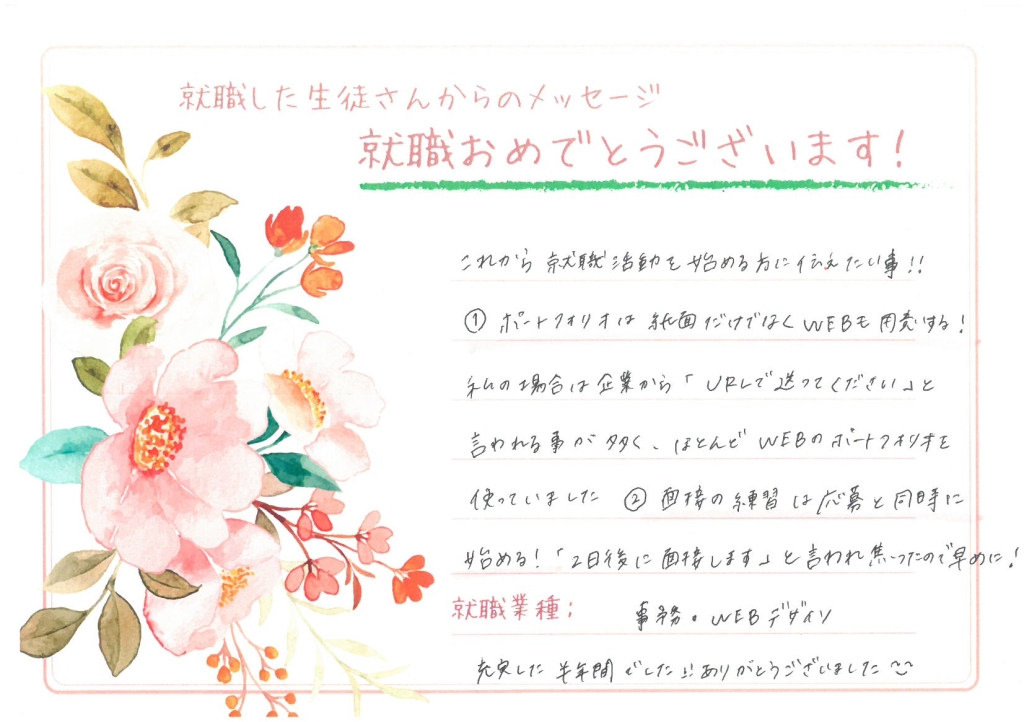 就職した生徒さんからのメッセージ
就職おめでとうございます！
これから就職活動を始める方に伝えたい事!!
① ポートフォリオは紙面だけではくWEBも用意する！
私の場合は企業から「URLで送ってください」と
言われる事が多く、ほとんどWEBのポートフォリオを
使っていました ② 面接の練習は応募と同時に
始める！「2日後に面接します」と言われ焦ったので早めに！
就職業種； 事務・WEBデザイン
充実した半年間でした!! ありがとうございました